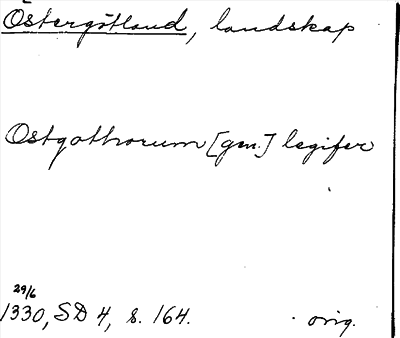 Östergötland, landskap
Ostgothorum [gen.] legifer
29/6
1330, SD 4, s. 164. orig.